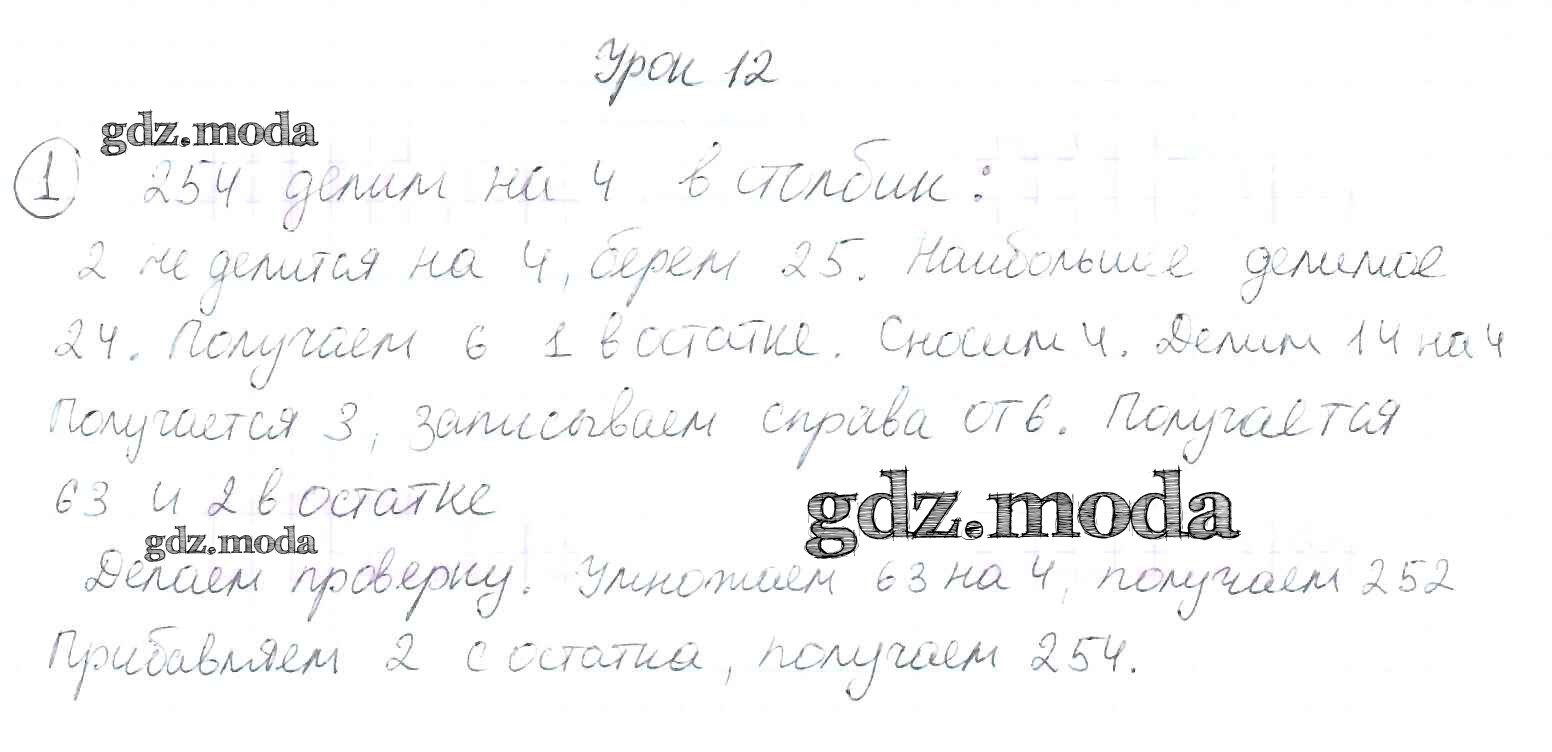 Урок 12
gdz.moda
1 254 делим на 4 в столбик:
2 не делится на 4, берем 25. Наибольшее делимое
24. Получаем 6 1 в остатке. Сносим 4. Делим 14 на 4
Получается 3, записываем справа от 6. Получается
63 и 2 в остатке
gdz.moda
gdz.moda
Делаем проверку. Умножаем 63 на 4, получаем 252
Прибавляем 2 с остатка, получаем 254.